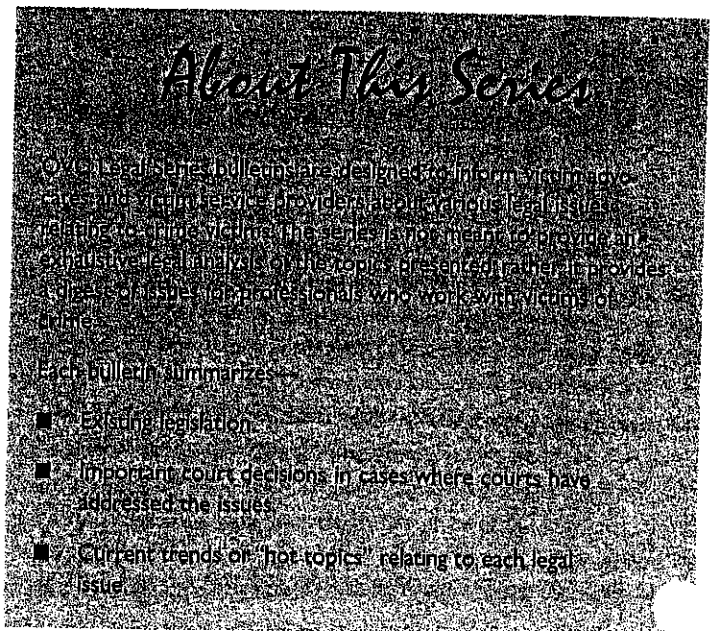 About This Series
OVC Legal Series bulletins are designed to inform victim advo-
cates and victim service providers about various legal issues
relating to crime victims. The series is not meant to provide an
exhaustive legal analysis of the topics presented; rather, it provides
a digest of issues for professionals who work with victims of
crime.
Each bulletin summarizes—
■ Existing legislation.
■ Important court decisions in cases where courts have
addressed the issues.
■ Current trends or "hot topics" relating to each legal
issue.